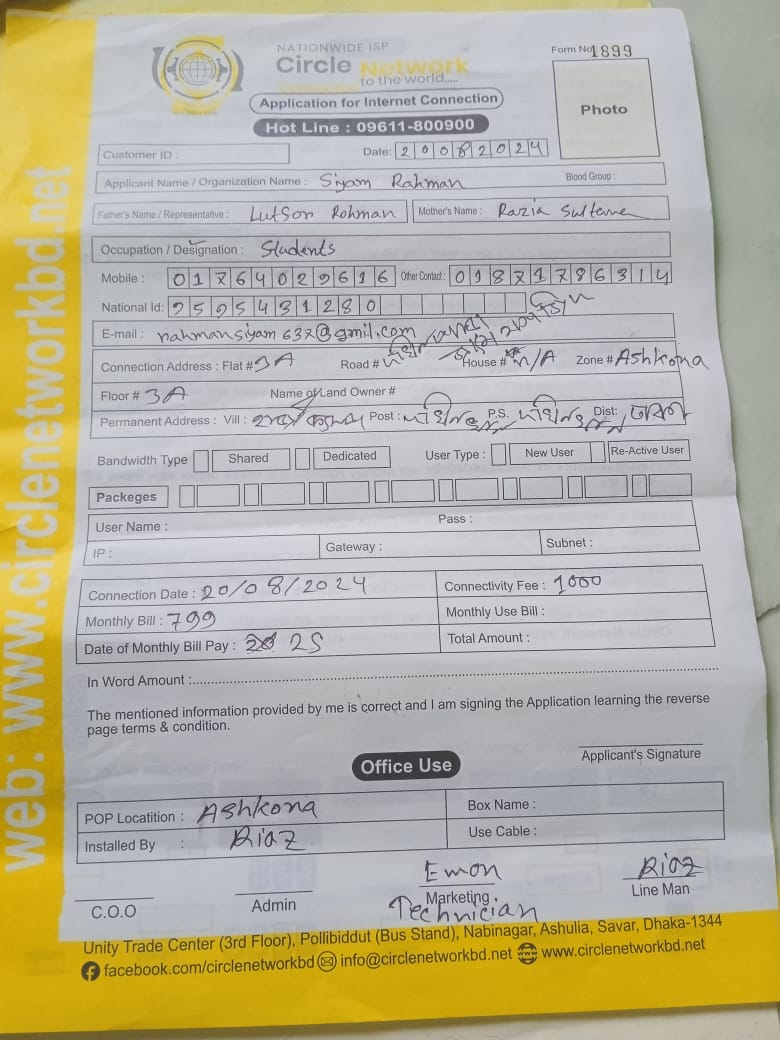 NATIONWIDE ISP
Circle Network
to the world.....
Form No 1899
Application for Internet Connection
Hot Line : 09611-800900
Photo
Customer ID :
Date: 20082024
Applicant Name / Organization Name : Siyam Rahman
Blood Group :
Father's Name / Representative : Lutsor Rohman
Mother's Name : Razia Sultana
Occupation / Designation : Students
Mobile : 01764029616 Other Contact : 01871786314
National Id: 9595431280
E-mail : rahmansiyam637@gmil.com
Connection Address : Flat # 3A Road # House # N/A Zone # Ashkona
Floor # 3A Name of Land Owner #
Permanent Address : Vill : Post : P.S. Dist:
Bandwidth Type Shared Dedicated User Type : New User Re-Active User
Packeges
User Name : Pass :
IP : Gateway : Subnet :
Connection Date : 20/08/2024 Connectivity Fee : 1000
Monthly Bill : 799 Monthly Use Bill :
Date of Monthly Bill Pay : 25 Total Amount :
In Word Amount :
The mentioned information provided by me is correct and I am signing the Application learning the reverse
page terms & condition.
Applicant's Signature
Office Use
POP Locatition : Ashkona Box Name :
Installed By : Riaz Use Cable :
Emon Riaz
C.O.O Admin Marketing. Line Man
Technician
Unity Trade Center (3rd Floor), Pollibiddut (Bus Stand), Nabinagar, Ashulia, Savar, Dhaka-1344
facebook.com/circlenetworkbd info@circlenetworkbd.net www.circlenetworkbd.net
web: www.circlenetworkbd.net